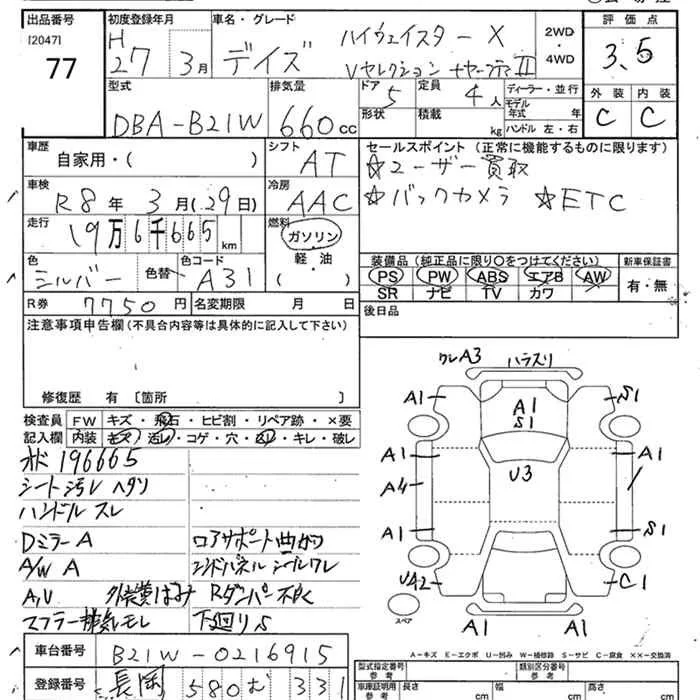 出品番号 初度登録年月 車名・グレード 2WD・4WD 評価点
[2047]
77 H27 3月 デイズ ハイウェイスターX 3.5
Vセレクション+セーフティII
型式 DBA-B21W 排気量 660cc ドア 5 定員 4人 ディーラー・並行 外装 内装
形状 積載 kg モデル年式 年 C C
ハンドル 左・右
車歴 自家用・( ) シフト AT セールスポイント (正常に機能するものに限ります)
☆ユーザー買取
車検 R8年3月(29日) 冷房 AAC ☆バックカメラ ☆ETC
走行 19万6千665km 燃料 ガソリン
軽・油
( )
色 シルバー 色替 色コード A31 装備品 (純正品に限り○をつけてください) 新車保証書
PS PW ABS エアB AW 有・無
SR ナビ TV カワ
R券 7750円 名変期限 月 日 後日品
注意事項申告欄 (不具合内容等は具体的に記入して下さい)
修復歴 有 〔箇所
検査員記入欄 FW キズ・飛石・ヒビ割・リペア跡・×要
内装 キズ・汚レ・コゲ・穴・凹・キレ・破レ
196665
シート汚レ ヘタリ
ハンドル スレ
Dミラー A ロアサポート曲がり
A/W A
A,U Rダンパー不良
スフラー排気モレ 下廻りS
ワレA3 ハラスリ
A1 A1 S1 S1
A1 A1
A4 U3
A1 S1
UA2 C1
スペア A1 A1
A-キズ E-エクボ U-凹み W-補修跡 S-サビ C-腐食 ××-交換済
車台番号 B21W-0216915
登録番号 長岡 580 む 331
型式指定番号 参考 類別区分番号 参考
車庫証明用 参考 長さ cm 幅 cm 高さ cm